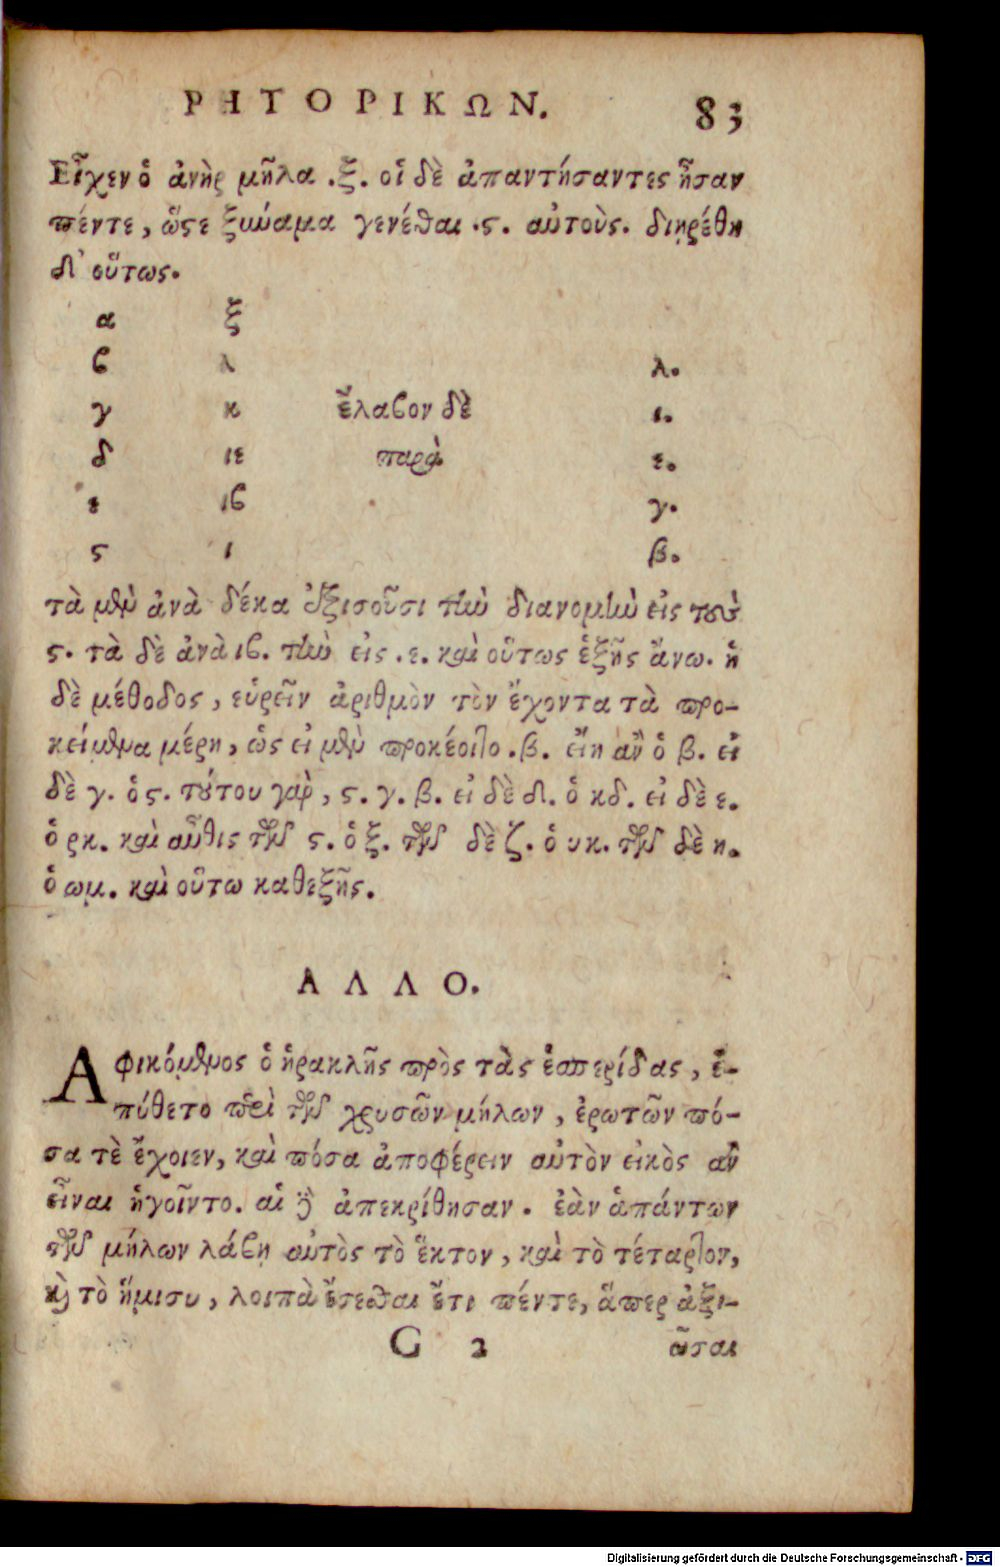 ΡΗΤΟΡΙΚΩΝ. 83
Εἶχεν ὁ ἀνὴρ μῆλα .ξ. οἱ δὲ ἀπαντήσαντες ἦσαν
πέντε, ὥστε ξυνάμα γενέσθαι .ϛ. αὐτοὺς. διῃρέθη
δ' οὕτως.
α ξ
ϐ λ λ.
γ κ ἔλαϐον δὲ ι.
δ ιε παρὰ ε.
ε ιϐ γ.
ϛ ι β.
τὰ μὲν ἀνὰ δέκα ἐξισοῦσι τὴν διανομὴν εἰς τοὺς
ϛ. τὰ δὲ ἀνὰ ιϐ. τὴν εἰς .ε. καὶ οὕτως ἑξῆς ἄνω. ἡ
δὲ μέθοδος, εὑρεῖν ἀριθμὸν τὸν ἔχοντα τὰ προ-
κείμενα μέρη, ὡς εἰ μὲν προκέοιτο .β. εἴη ἂν ὁ β. εἰ
δὲ γ. ὁ ϛ. τούτου γὰρ, ϛ. γ. β. εἰ δὲ δ. ὁ κδ. εἰ δὲ ε.
ὁ ρκ. καὶ αὖθις τῶν ϛ. ὁ ξ. τῶν δὲ ζ. ὁ υκ. τῶν δὲ η.
ὁ ωμ. καὶ οὕτω καθεξῆς.
ΑΛΛΟ.
Αφικόμενος ὁ ἡρακλῆς πρὸς τὰς ἑσπερίδας, ἐ-
πύθετο περὶ τῶν χρυσῶν μήλων, ἐρωτῶν πό-
σα τὲ ἔχοιεν, καὶ πόσα ἀποφέρειν αὐτὸν εἰκὸς ἂν
εἶναι ἡγοῖντο. αἱ δὲ ἀπεκρίθησαν. ἐὰν ἁπάντων
τῶν μήλων λάϐῃ αὐτὸς τὸ ἕκτον, καὶ τὸ τέταρτον,
καὶ τὸ ἥμισυ, λοιπὰ ἔσεσθαι ἔτι πέντε, ἅπερ ἀξι-
G 2 ῶσαι
Digitalisierung gefördert durch die Deutsche Forschungsgemeinschaft - DFG